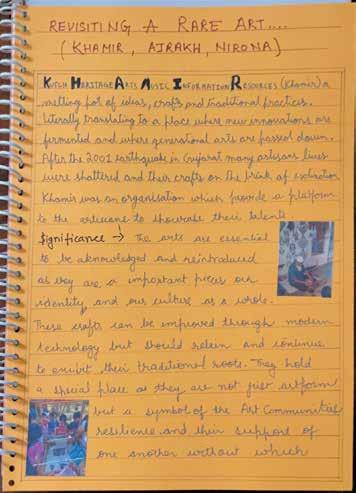 REVISITING A RARE ART....
(KHAMIR, AJRAKH, NIRONA)
KUTCH HERITAGE ARTS MUSIC INFORMATION RESOURCES (Khamir) a
melting pot of ideas, crafts and traditional practices.
Literally translating to a place where new innovations are
fermented and where generational arts are passed down.
After the 2001 earthquake in Gujarat many artisans lives
were shattered and their crafts on the brink of extinction
Khamir was an organisation which provide a platform
to the artisans to showcase their talents
Significance → The arts are essential
to be acknowledged and reintroduced
as they are a important pieces our
identity and our culture as a whole.
These crafts can be improved through modern
technology but should retain and continue
to exhibit their traditional roots. They hold
a special place as they are not just artform
but a symbol of the Art Communities
resilience and their support of
one another without which